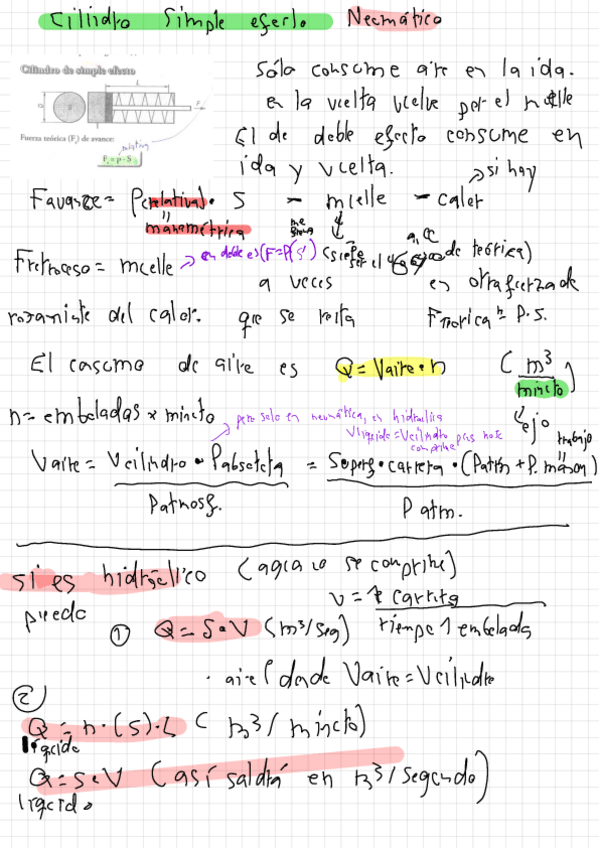 Cilindro Simple efecto Neumático
Cilindro de simple efecto
Fuerza teórica (F) de avance:
relativa
F = p · S
Sólo consume aire en la ida.
en la vuelta vuelve por el muelle
El de doble efecto consume en
ida y vuelta.
si hay
Favance = P(relativa) · S - muelle - calor
manométrica
Fretroceso = muelle → en doble es (F=P(S')
de teórica)
a veces en otra fuerza de
rozamiento del calor. que se resta Fteórica = P. S.
El consumo de aire es Q = Vaire · n (m³/minuto)
n = emboladas x minuto
ojo
pero solo en neumática, en hidráulica
Vlíquido = Vcilindro pues no se
comprime
trabajo
Vaire = Vcilindro · Pabsoluta / Patmosf. = Superf · carrera · (Patm + P. manom) / Patm.
si es hidráulico (agua no se comprime)
puedo
v = carrera / tiempo 1 embolada
① Q = S · V (m³/seg)
donde Vaire = Vcilindro
②
Q = n · (S) · L (m³/minuto)
líquido
Q = S · V (así saldrá en m³/segundo)
líquido